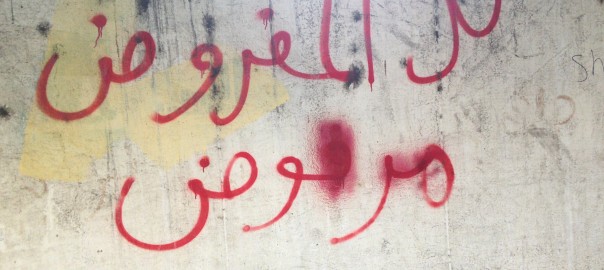 كل المفروض
مرفوض